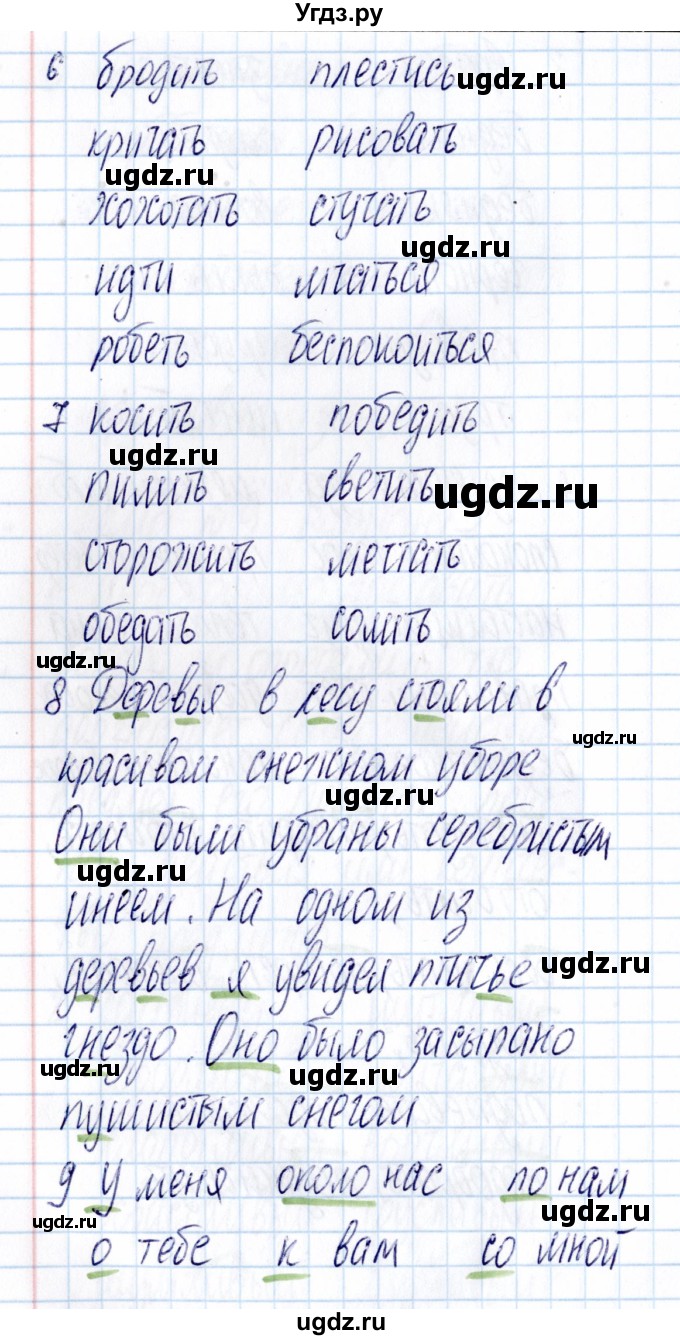 Угдз.ру
6 бродить плестись
ugdz.ru
кричать рисовать
ugdz.ru
хохотать стучать
ugdz.ru
идти мчаться
робеть беспокоиться
7 косить победить
ugdz.ru
пилить светить
ugdz.ru
сторожить мечтать
обедать солить
ugdz.ru
8 Деревья в лесу стояли в
ugdz.ru
красивом снежном уборе
ugdz.ru
Они были убраны серебристым
ugdz.ru
инеем. На одном из
деревьев я увидел птичье
ugdz.ru
гнездо. Оно было засыпано
ugdz.ru ugdz.ru
пушистым снегом
9 у меня около нас по нам
ugdz.ru ugdz.ru
о тебе к вам со мной
ugdz.ru